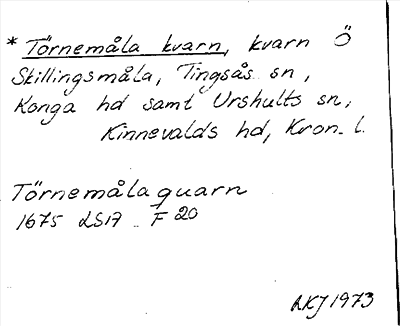 * Törnemåla kvarn, kvarn Ö
Skillingsmåla, Tingsås sn,
Konga hd samt Urshults sn,
Kinnevalds hd, Kron. l.
Törnemåla quarn
1675 LS17 F 20
AKJ 1973